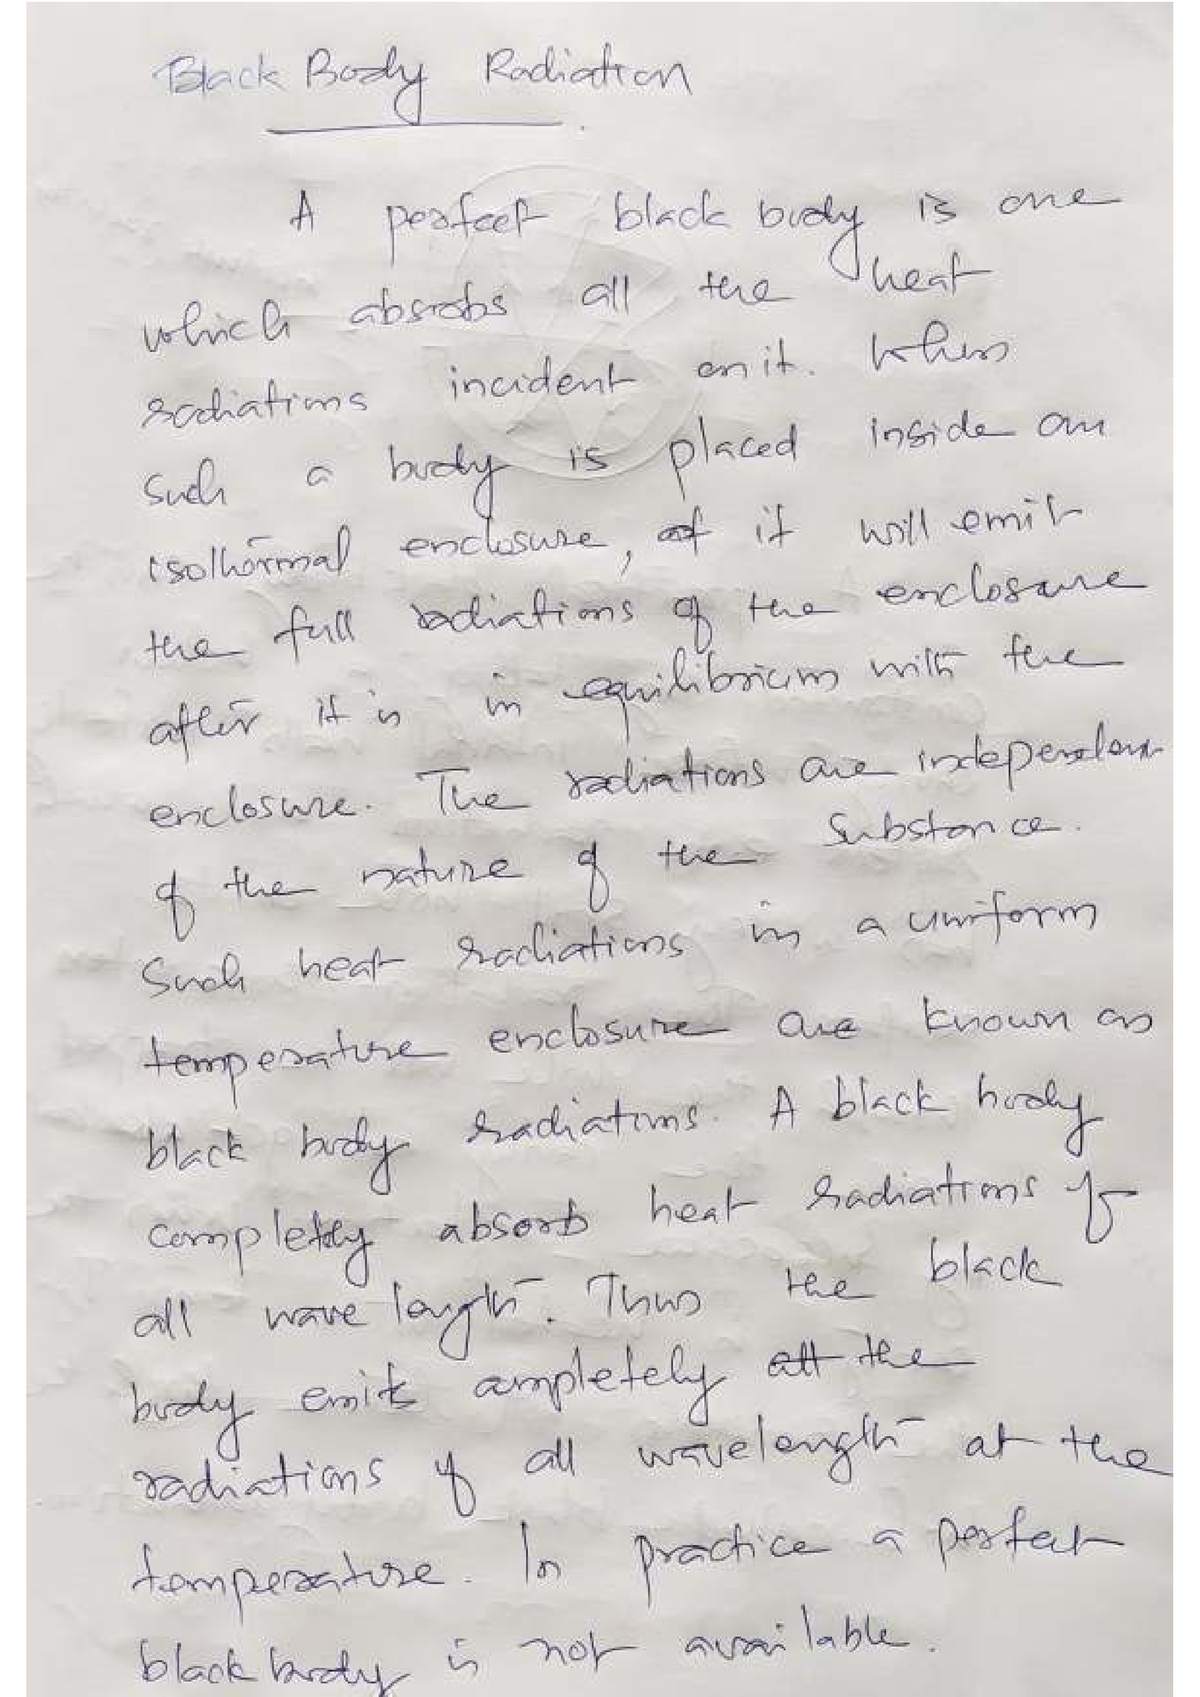 Black Body Radiation
A perfect black body is one
which absrobs all the heat
radiations incident on it. When
such a body is placed inside an
isothermal enclosure, it will emit
the full radiations of the enclosure
after it is in equilibrium with the
enclosure. The radiations are independent
of the nature of the substance.
Such heat radiations in a uniform
temperature enclosure are known as
black body radiations. A black body
completely absorb heat radiations of
all wave length. Thus the black
body emits completely the
radiations of all wavelength at the
temperature. In practice a perfect
black body is not available.